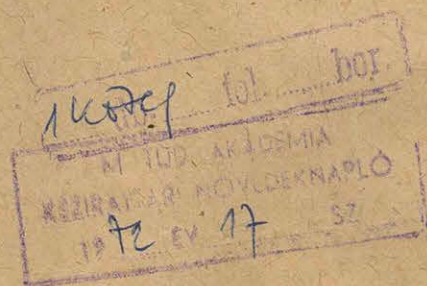 fol. bor.
M. TUD. AKADÉMIA
KÉZIRATTÁRI NÖVEDÉKNAPLÓ
1972 ÉV 17 SZ.